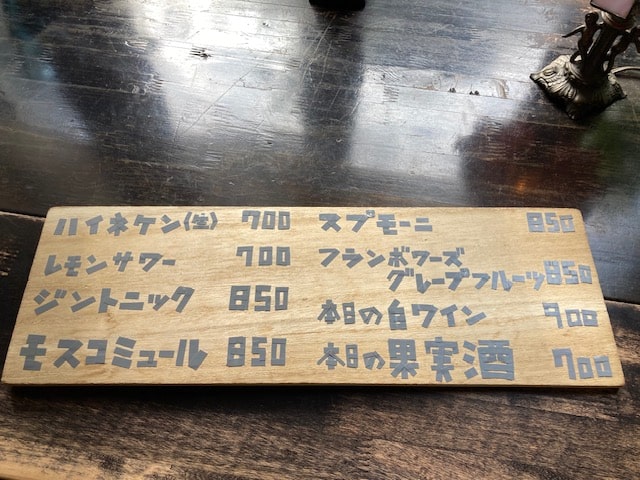 ハイネケン(生) 700
レモンサワー 700
ジントニック 850
モスコミュール 850
スプモーニ 850
フランボワーズ
グレープフルーツ 850
本日の白ワイン 900
本日の果実酒 700